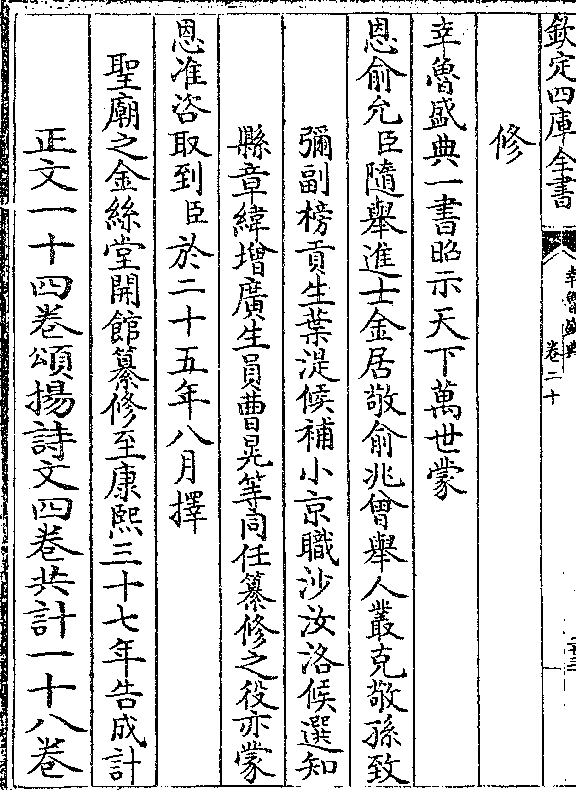 欽定四庫全書
幸魯盛典
卷二十
修
幸魯盛典一書昭示天下萬世蒙
恩俞允臣隨舉進士金居敬俞兆曾舉人叢克敬孫致
彌副榜貢生葉湜候補小京職沙汝洛候選知
縣章緯增廣生員曹晃等同任纂修之役亦蒙
恩准咨取到臣於二十五年八月擇
聖廟之金絲堂開館纂修至康熙三十七年告成計
正文一十四卷頌揚詩文四卷共計一十八卷